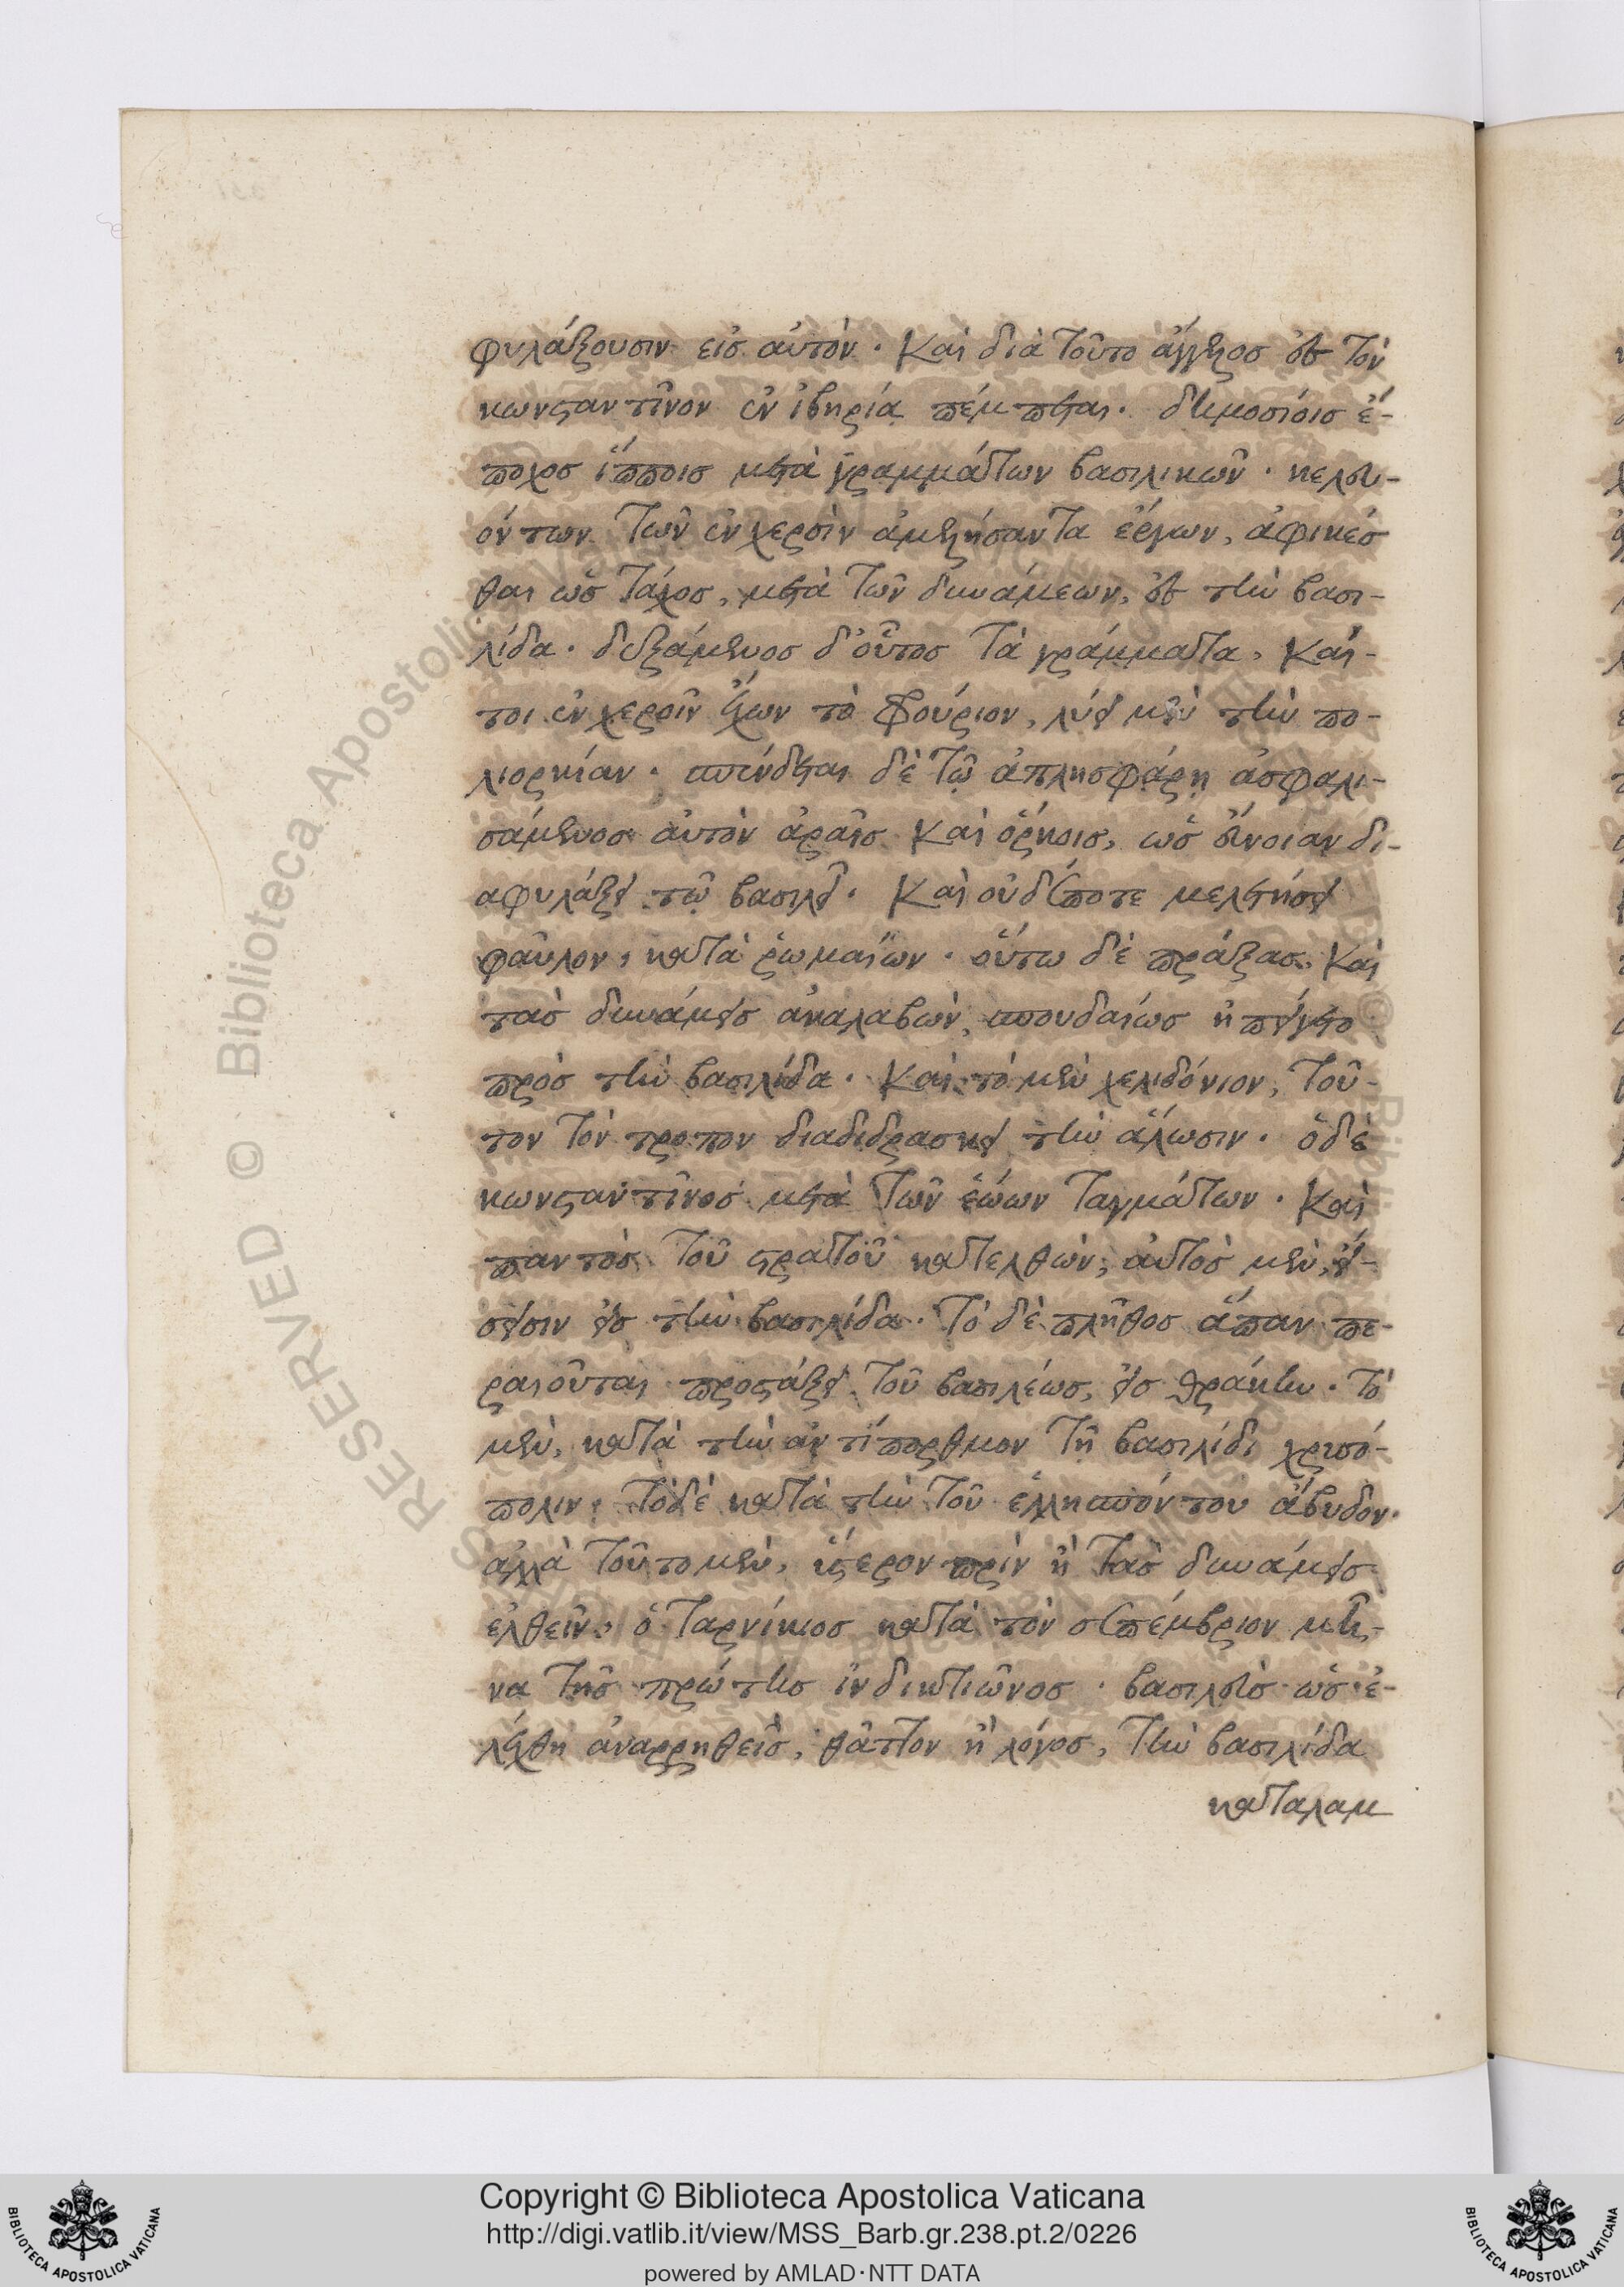 φυλάξουσιν εἰσ αὐτὸν. Καὶ διὰ τοῦτο ἄγγελοσ ἐπὶ τὸν
κωνσταντῖνον ἐν ἰβηρίᾳ πέμπεται. δημοσίοισ ἔ-
ποχοσ ἵπποισ μετὰ γραμμάτων βασιλικῶν. κελευ-
όντων τῶν ἐν χερσὶν ἀμελήσαντα ἔργων, ἀφικέσ
θαι ὡσ τάχοσ, μετὰ τῶν δυνάμεων, ἐπὶ τὴν βασι-
λίδα. δεξάμενοσ δ' οὗτοσ τὰ γράμματα, Καί-
τοι ἐν χεροῖν ἔχων τὸ φρούριον, λύει μὲν τὴν πο-
λιορκίαν. σπένδεται δὲ τῷ ἀπλησφάρῃ ἀσφαλι-
σάμενοσ αὐτὸν ἀραῖσ Καὶ ὅρκοισ, ὡσ εὔνοιαν δι-
αφυλάξει τῷ βασιλεῖ. Καὶ οὐδέποτε μελετήσει
φαῦλον, κατὰ ῥωμαίων. οὕτω δὲ πράξασ Καὶ
τὰσ δυνάμεισ ἀναλαβὼν, σπουδαίωσ ἠπείγετο
πρὸσ τὴν βασιλίδα. Καὶ τὸ μὲν χελιδόνιον, τοῦ-
τον τὸν τροπον διαδιδρασκει τὴν ἅλωσιν. ὁ δὲ
κωνσταντῖνοσ μετὰ τῶν ἑώων ταγμάτων. Καὶ
παντὸσ τοῦ στρατοῦ κατελθὼν, αὐτὸσ μὲν, εἴ-
σεισιν εἰσ τὴν βασιλίδα. Τὸ δὲ πλῆθοσ ἅπαν πε-
ραιοῦται προστάξει τοῦ βασιλέωσ, εἰσ θράκην. τὸ
μὲν, κατὰ τὴν ἀντίπορθμον τῇ βασιλίδι χρυσό-
πολιν, τὸ δὲ κατὰ τὴν τοῦ ἑλλησπόντου ἄβυδον.
ἀλλὰ τοῦτο μὲν, ὕστερον πρὶν ἢ τὰσ δυνάμεισ
ἐλθεῖν, ὁ ταρνίκιοσ κατὰ τὸν σεπτέμβριον μῆ-
να τῆσ πρώτησ ἰνδικτιῶνοσ. βασιλεὺσ ὡσ ἐ-
λέχθη ἀναρρηθεὶσ, θᾶττον ἢ λόγοσ, τὴν βασιλίδα
καταλαμ
Copyright © Biblioteca Apostolica Vaticana
http://digi.vatlib.it/view/MSS_Barb.gr.238.pt.2/0226
powered by AMLAD·NTT DATA